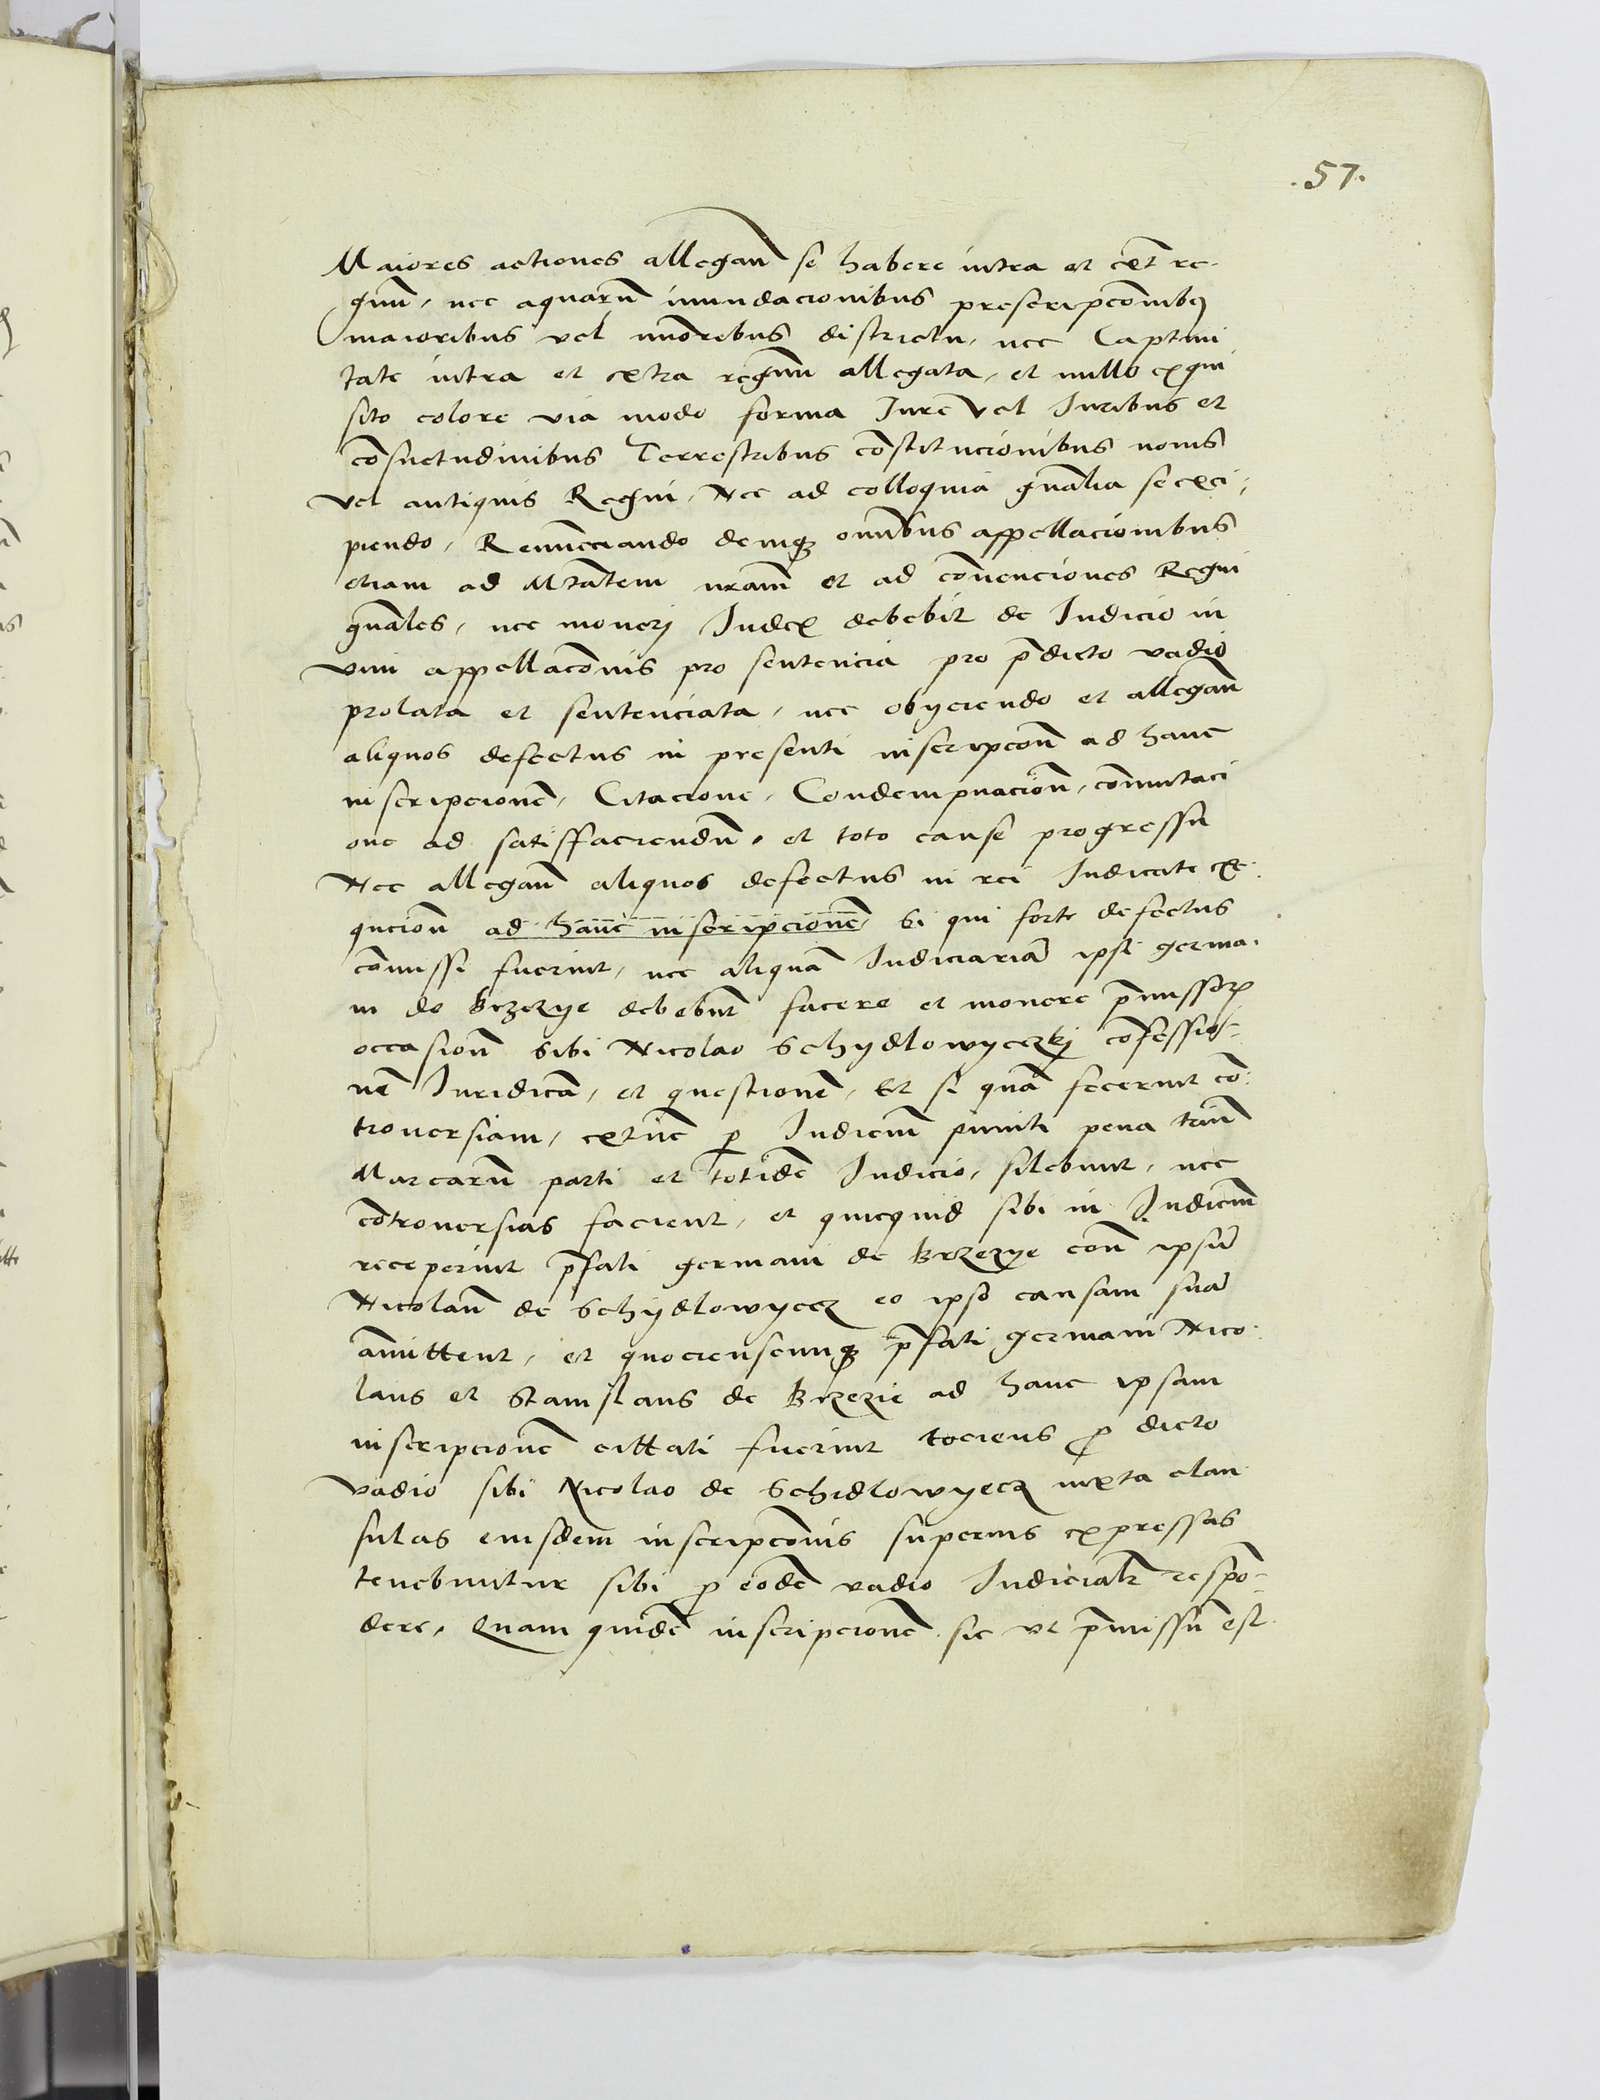 .57.
Maiores actiones allegan̄ se habere intra et ext̄ re-
gnū, nec aquarū inundacionibus prescripcōnibꝫ
maioribus vel mīoribus districtu, nec Captiui
tate intra et extra regnū allegata, et nullo exqui
sito colore via modo forma Jure vel Juribus et
cōsuetudinibus Terrestribus cōstitucionibus nouis
vel antiquis Regni, Nec ad colloquia gn̄alia se exci-
piendo, Renuncciando deniqꝫ om̄ibus appellacionibus
etiam ad Mtātem nrām et ad cōuenciones Regni
gn̄ales, nec moueri Judex debebit de Judicio in
vim appellacōnis pro sentencia pro p̄dicto vadio
prolata et sentenciata, nec obyciendo et allegan̄
aliquos defectus in presenti inscripcōn̄ ad hanc
inscripcionē, Citacione, Condempnacion̄, cōmutaci
one ad satisffaciendū, et toto cause progressu
Nec allegan̄ aliquos defectus in rei Judicate exe-
qucion̄ ad hanc inscripcionē, Si qui forte defectus
cōmissi fuerint, nec aliquā Judiciariā ipsi germa-
ni de Brzezye debebūt facere et mouere p̄missoꝝ
occasion̄ Sibi Nicolao Schydlowyeczkj cōfessio-
nē Juridicā, et questionē, Et si quā fecerint cō-
trouersiam, extūc ꝑ Judiciū puniti pena triū
Marcarū parti et totidē Judicio, silebunt, nec
cōtrouersias facient, et quicquid sibi in Judiciū
receperint p̄fati germani de Brzezye con̄ ipsū
Nicolaū de Schydlowyecz eo ipso causam suā
amittent, et quocienscunqꝫ p̄fati germani Nico-
laus et Stanislaus de Brzezie ad hanc ipsam
inscripcionē cittati fuerint tociens ꝓ dicto
vadio sibi Nicolao de Schidlowyecz iuxta clau
sulas eiusdem inscripcōnis superius expressas
tenebuntur sibi ꝓ eodē vadio Judicialr̄ respō-
dere, Quam quidē inscripcionē sic ut p̄missū est